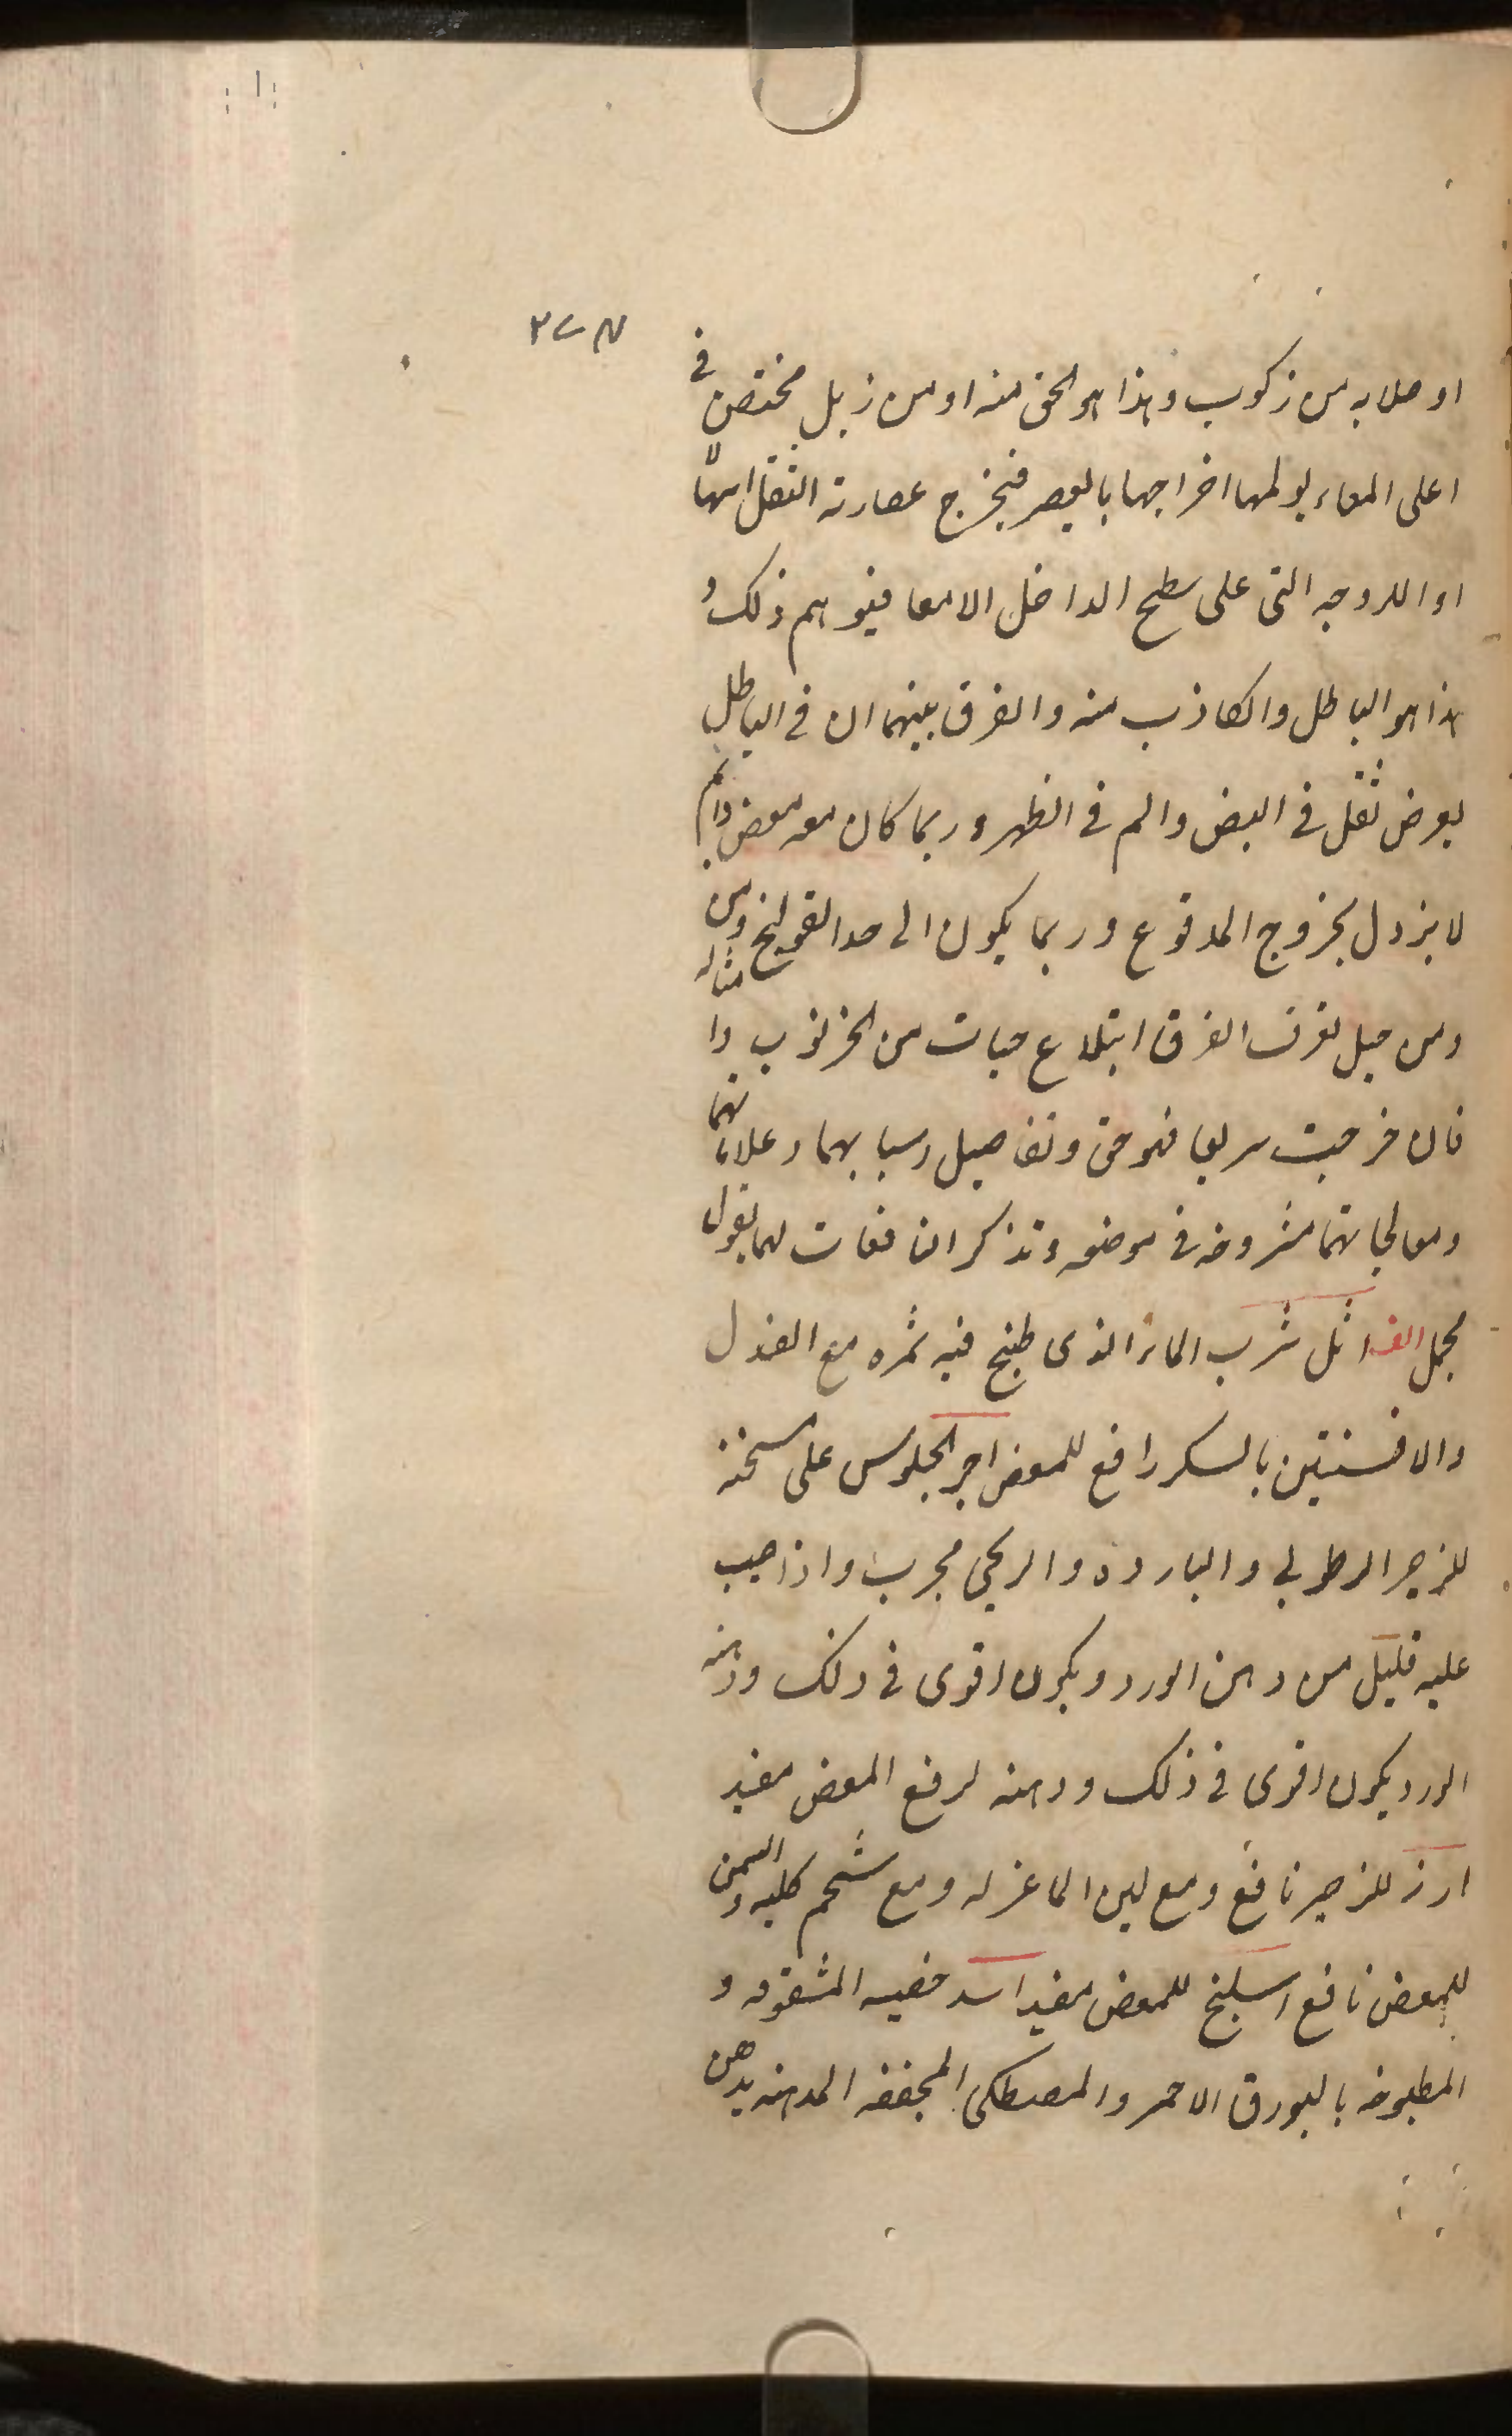 او صلابه من ركوب وهذا هو الحق منه او من زبل مختص فى
اعلى المعاء يولمها اخراجها بالعصر فيخرج عصارته الثقل اسهالا
او اللزوجه التى على سطح الداخل الامعا فيوهم ذلك و
هذا هو الباطل والكاذب منه والفرق بينهما ان فى الباطل
يعرض ثقل فى البعض والم فى الظهر وربما كان معه مغص دائم
لا يزول بخروج المدفوع وربما يكون الى حد القولنج ومن
ومن حيل تعرف الفرق ابتلاع حبات من الخرنوب وامثاله
فان خرجت سريعا فهو حق وتفاصيل اسبابهما وعلاماتهما
ومعالجاتهما مشروحه فى موضعه وتذكر النافعات لهما بقول
مجمل الف اثل شرب الماء الذى طبخ فيه ثمره مع الغدل
والافسنتين بالسكر رافع للمغص اجر الجلوس على مسخنه
للزحير الرطوبى والبارده والريحى مجرب واذا صب
عليه قليل من دهن الورد ويكون اقوى فى ذلك ودهنه
الورد يكون اقوى فى ذلك ودهنه لرفع المغص مفيد
ارز للزحير نافع ومع لبن الماعز له ومع شحم كليه والسمن
للمغص نافع اسليخ للمغص مفيد اسد خصيه المشقوقه و
المطبوخه بالبورق الاحمر والمصطكى المجففه المدهنه بدهن